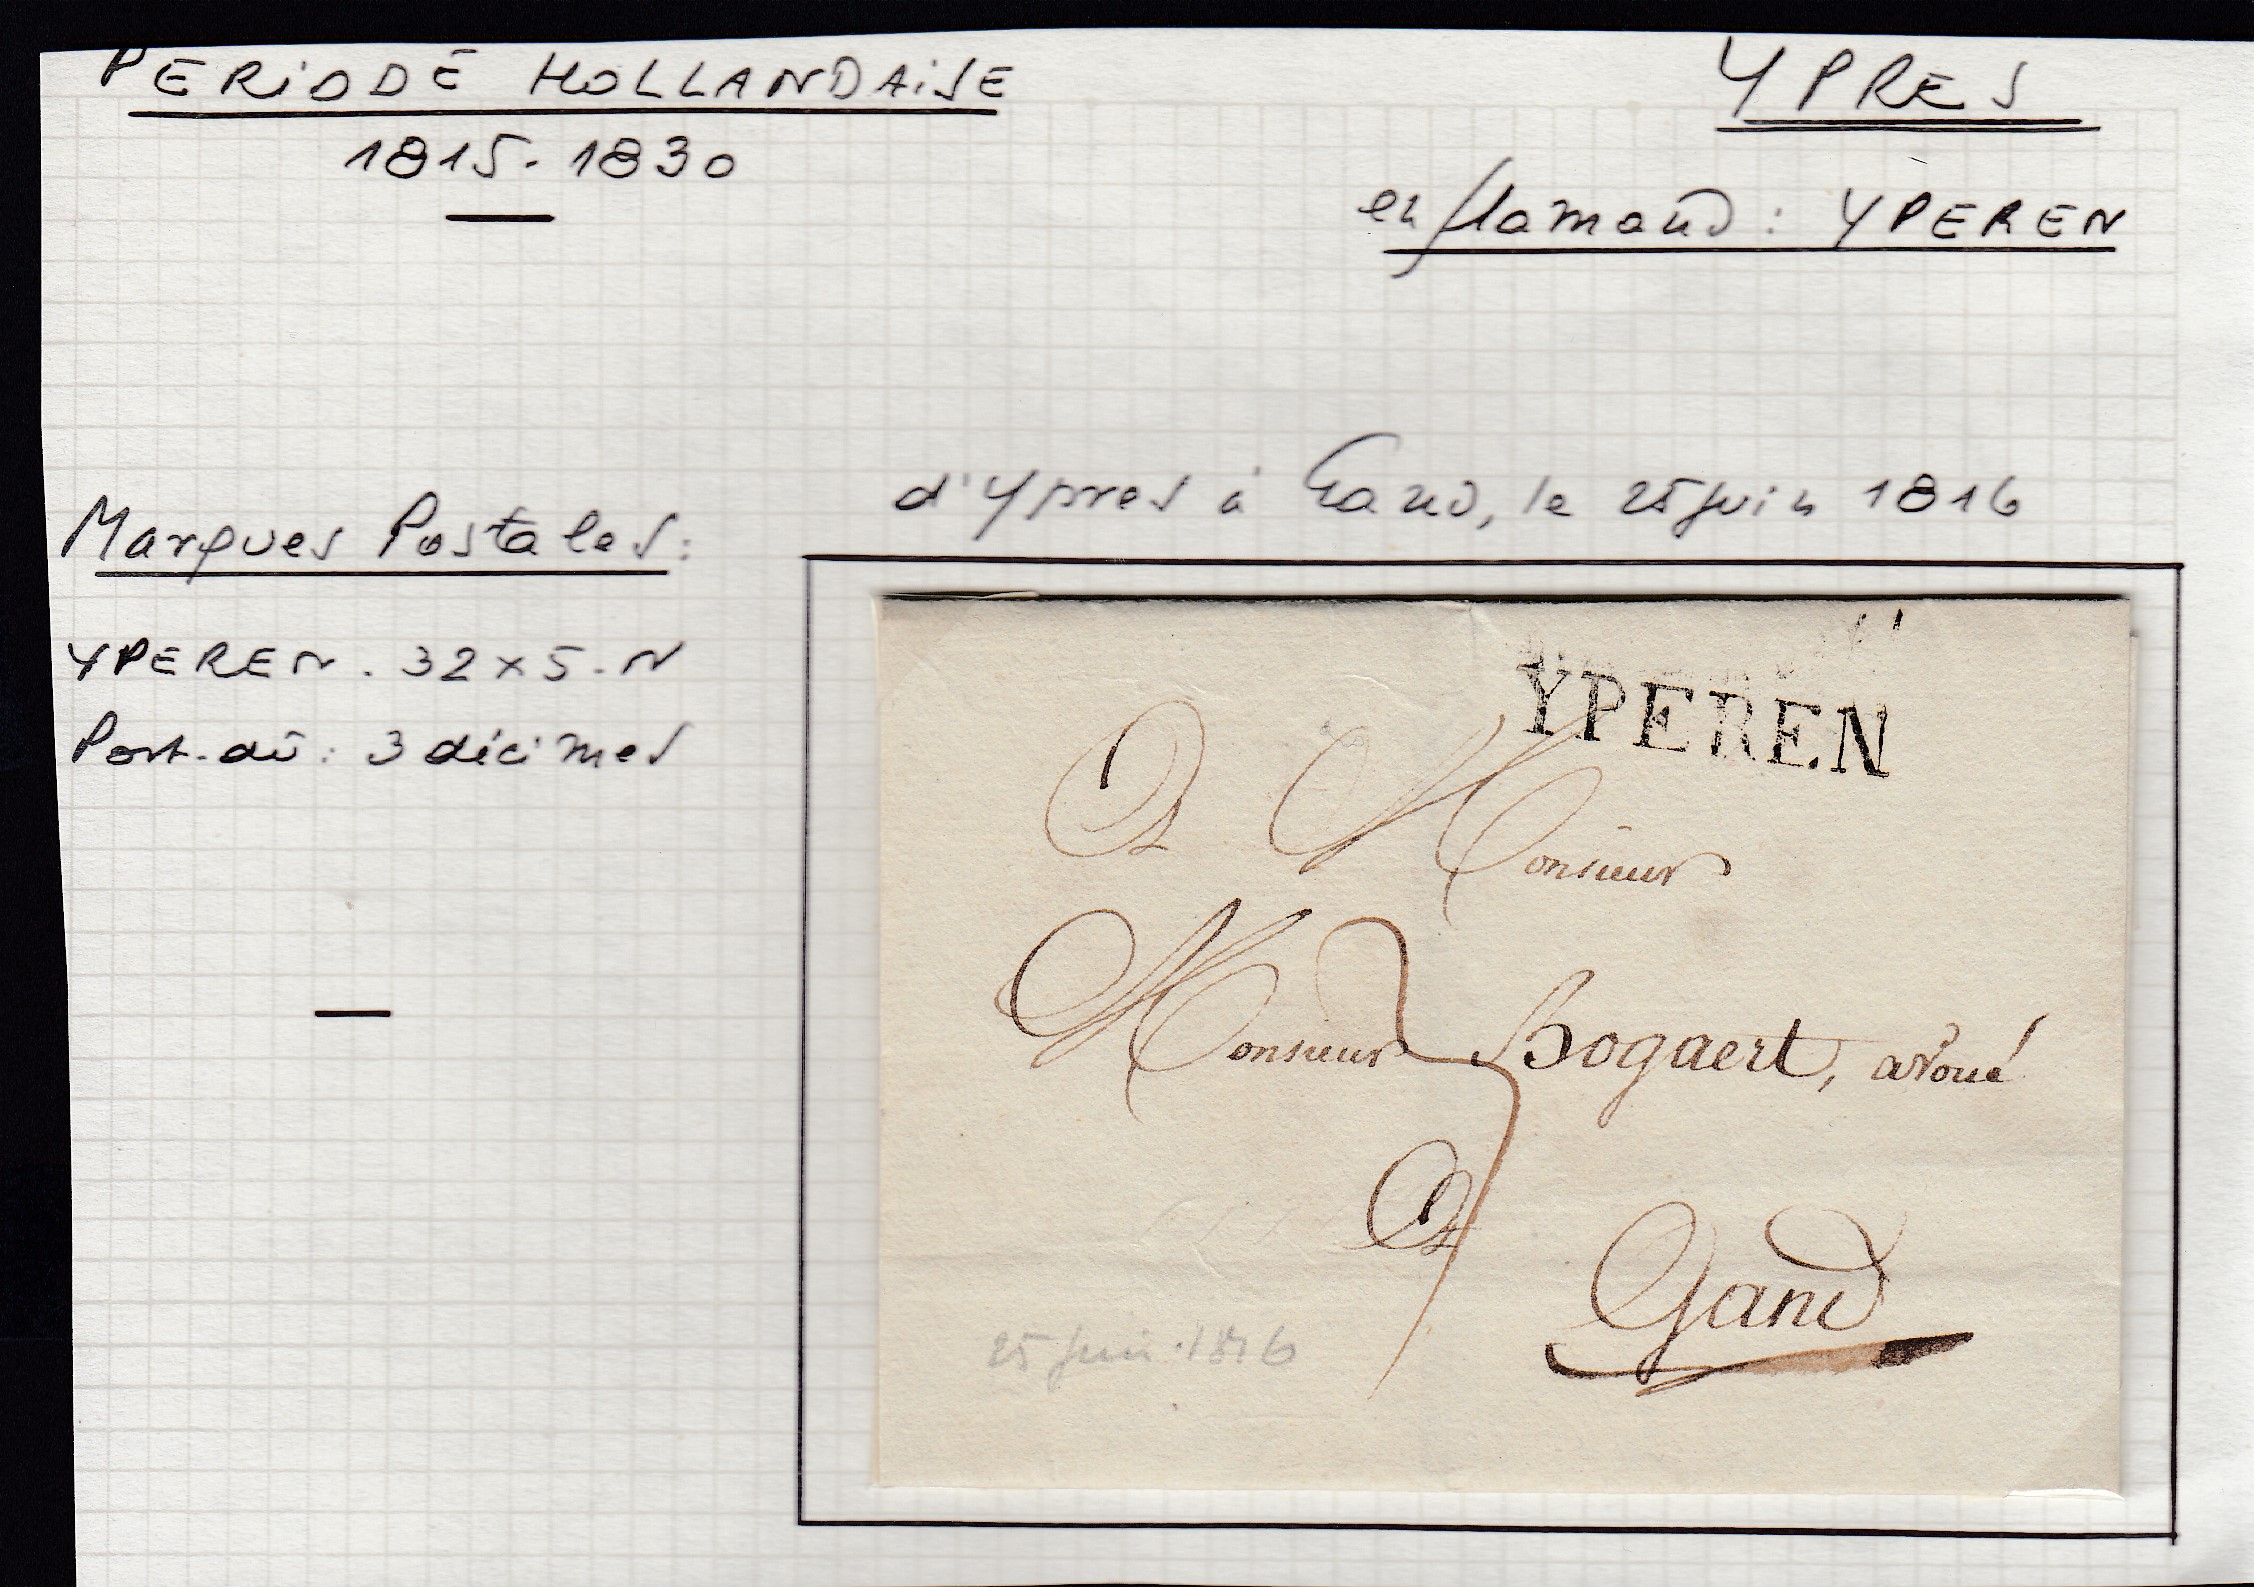 PERIODE HOLLANDAISE
1815-1830
YPRES
en flamand : YPEREN
d'Ypres à Gand, le 25 juin 1816
Marques Postales :
YPEREN . 32 x 5 - N
Port-dû : 3 décimes
YPEREN
A Monsieur
Monsieur Bogaert, avoué
3
A
Gand
25 juin 1816